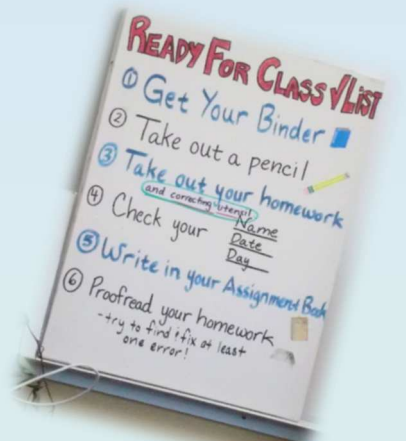 READY FOR CLASS √LIST
① Get Your Binder
② Take out a pencil
③ Take out your homework
and correcting utensil
④ Check your Name
Date
Day
⑤ Write in your Assignment Book
⑥ Proofread your homework
- try to find & fix at least
one error!